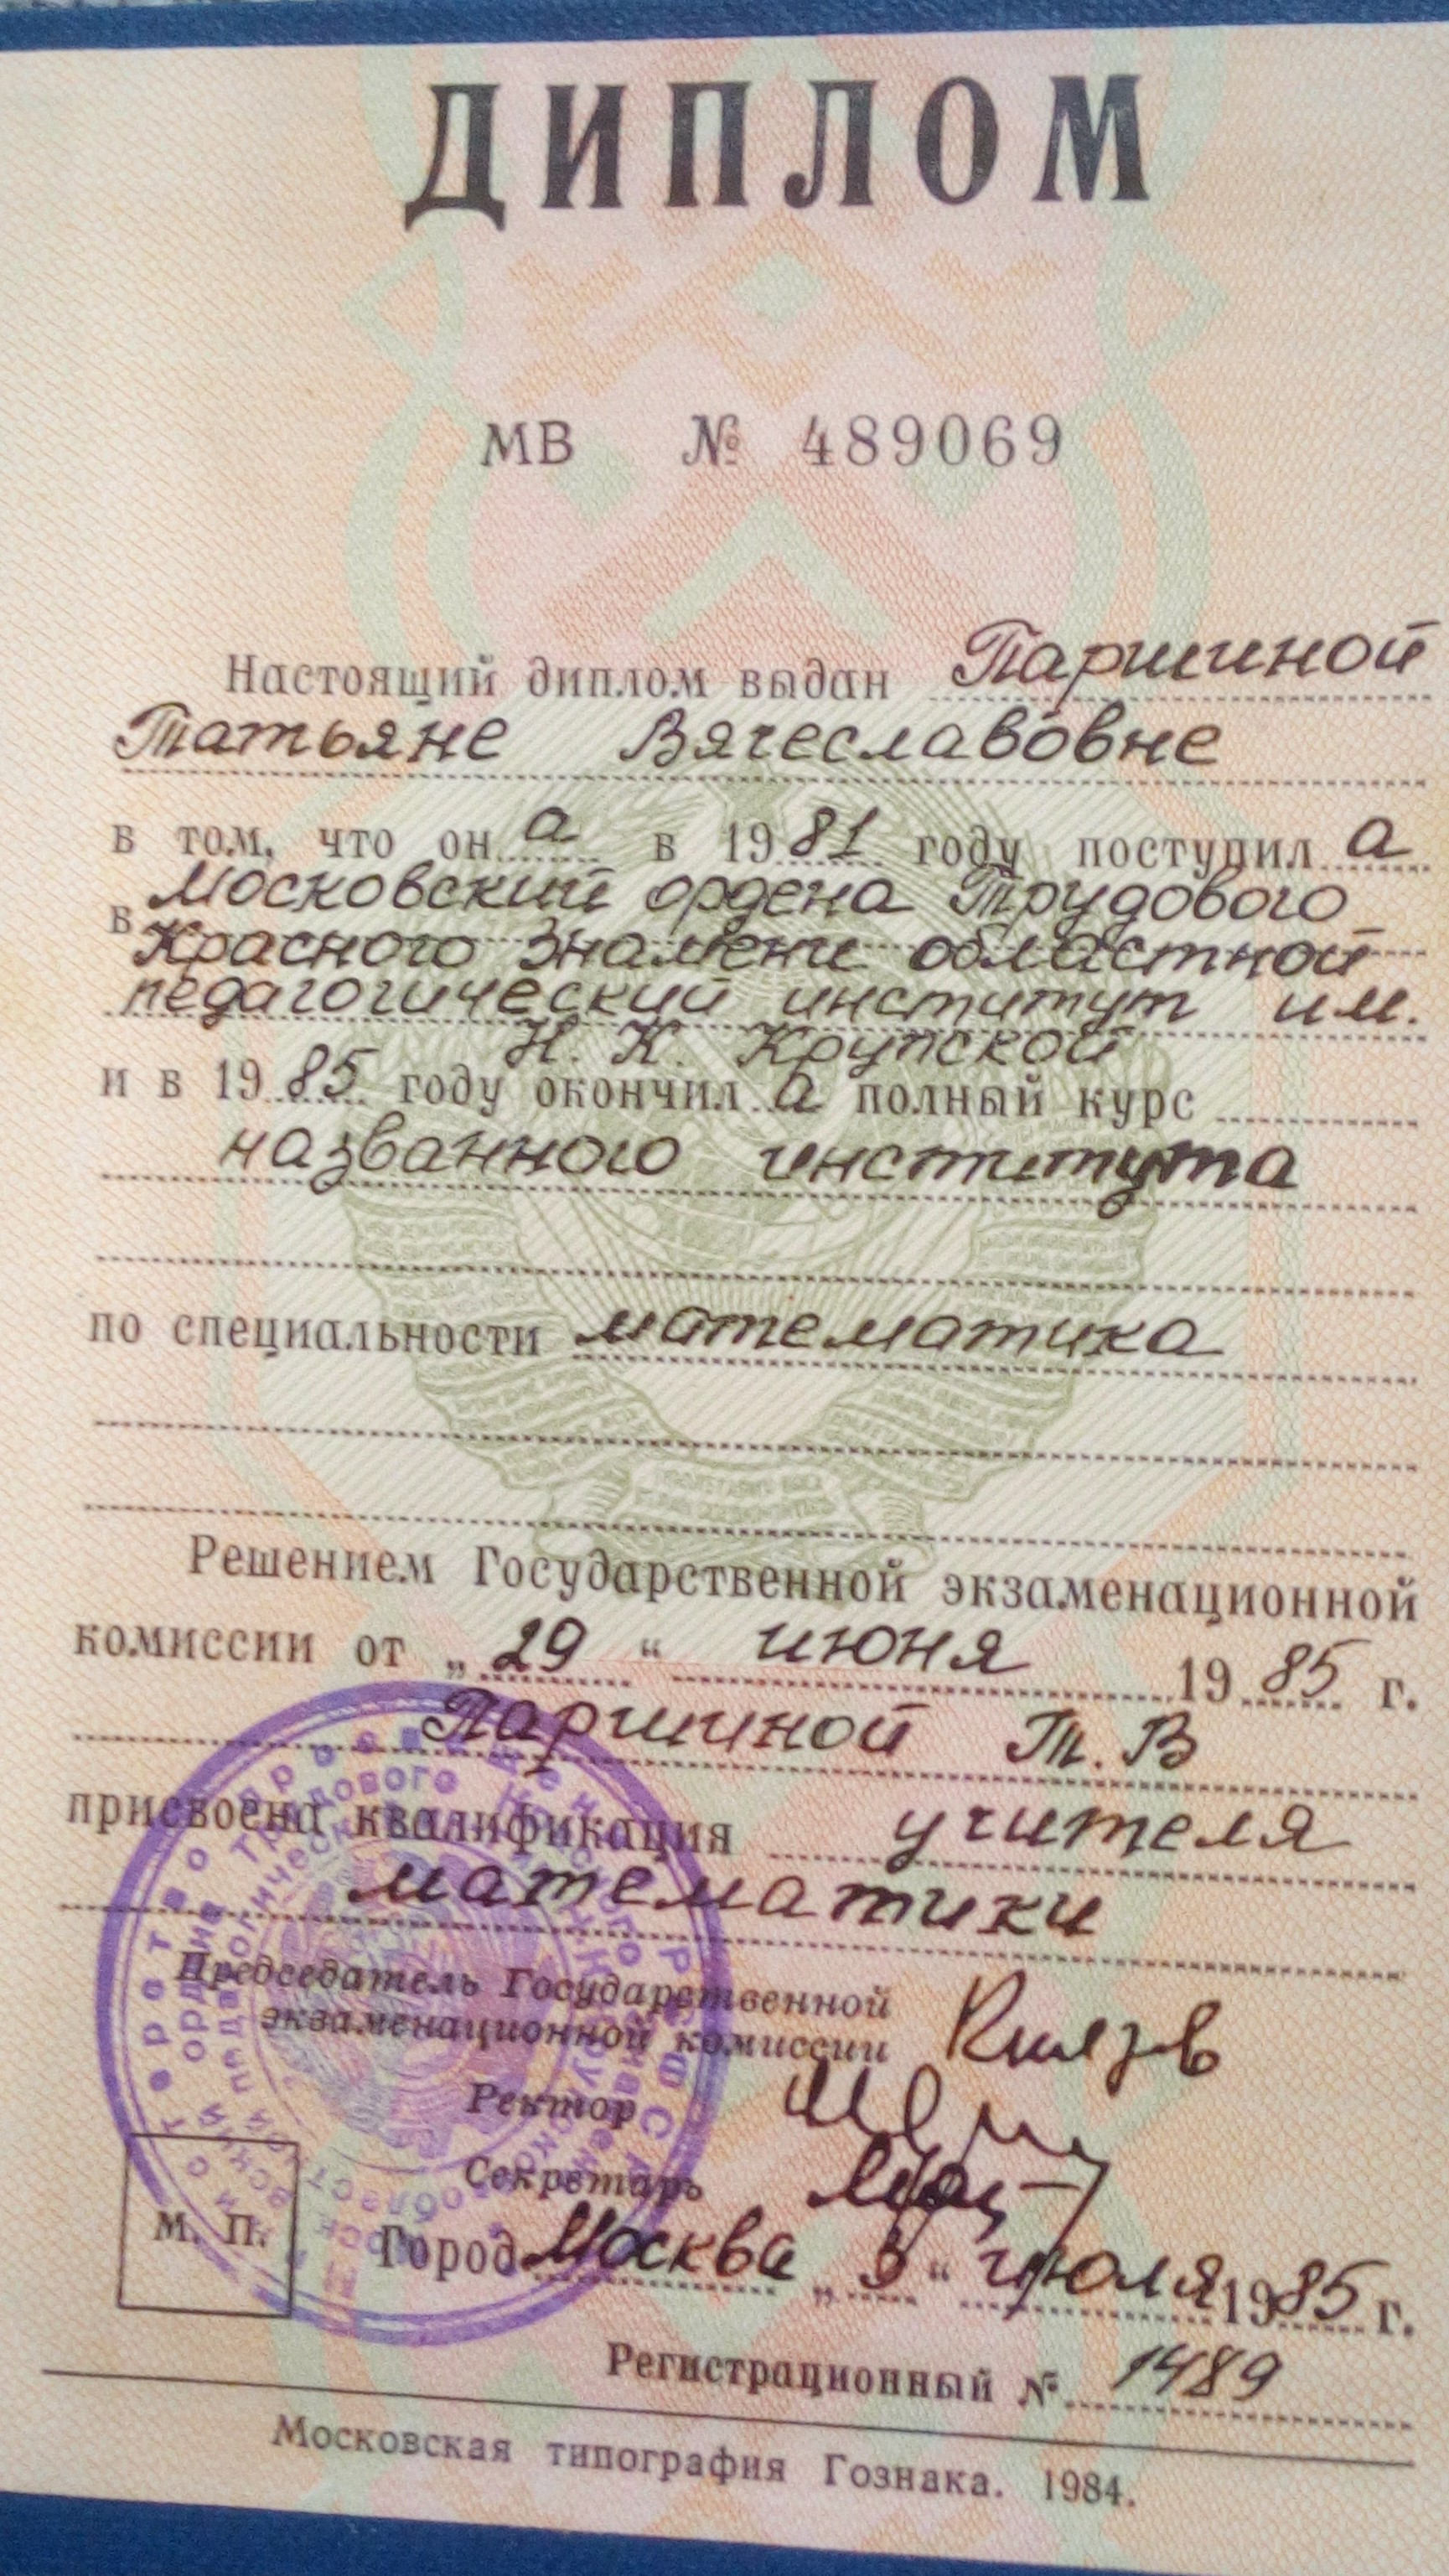 ДИПЛОМ
МВ № 489069
Настоящий диплом выдан Паршиной
Татьяне Вячеславовне
в том, что он а в 1981 году поступил а
в Московский ордена Трудового
Красного Знамени областной
педагогический институт им.
Н. К. Крупской
и в 1985 году окончил а полный курс
названного института
по специальности математика
Решением Государственной экзаменационной
комиссии от „29“ июня 1985 г.
Паршиной Т. В
присвоена квалификация учителя
математики
Председатель Государственной
экзаменационной комиссии
Ректор
Секретарь
М. П. Город Москва „3“ июля 1985 г.
Регистрационный № 1489
Московская типография Гознака. 1984.